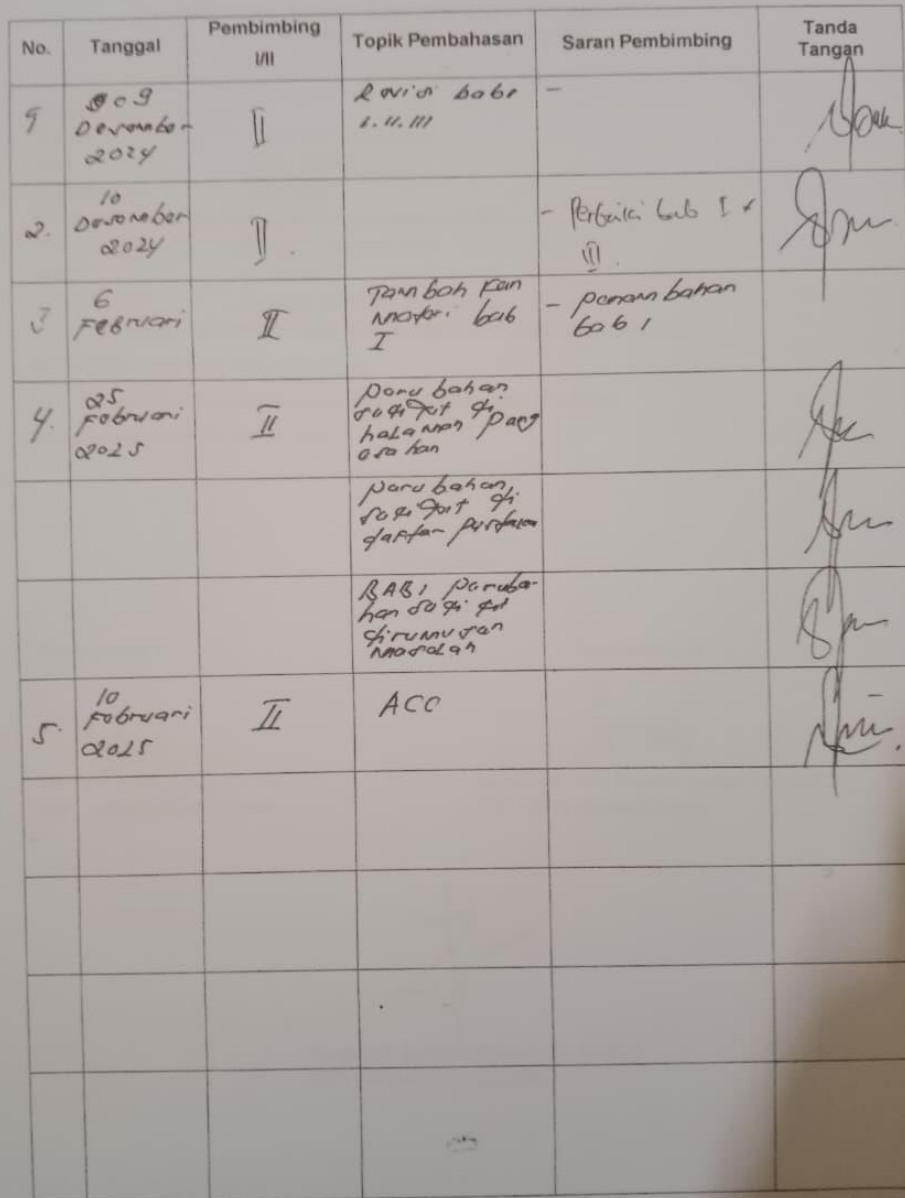 No. Tanggal Pembimbing I/II Topik Pembahasan Saran Pembimbing Tanda Tangan
09 Desember 2024 II Revisi bab I. II. III -
2. 10 Desember 2024 II. - Perbaiki bab I & III.
3 6 Februari II Tambahkan materi bab I - Penambahan bab I
4. 25 Februari 2025 II Perubahan sedikit di halaman Pengesahan
Perubahan sedikit di daftar pustaka
BAB I Perubahan sedikit dirumusan masalah
5. 10 Februari 2025 II ACC